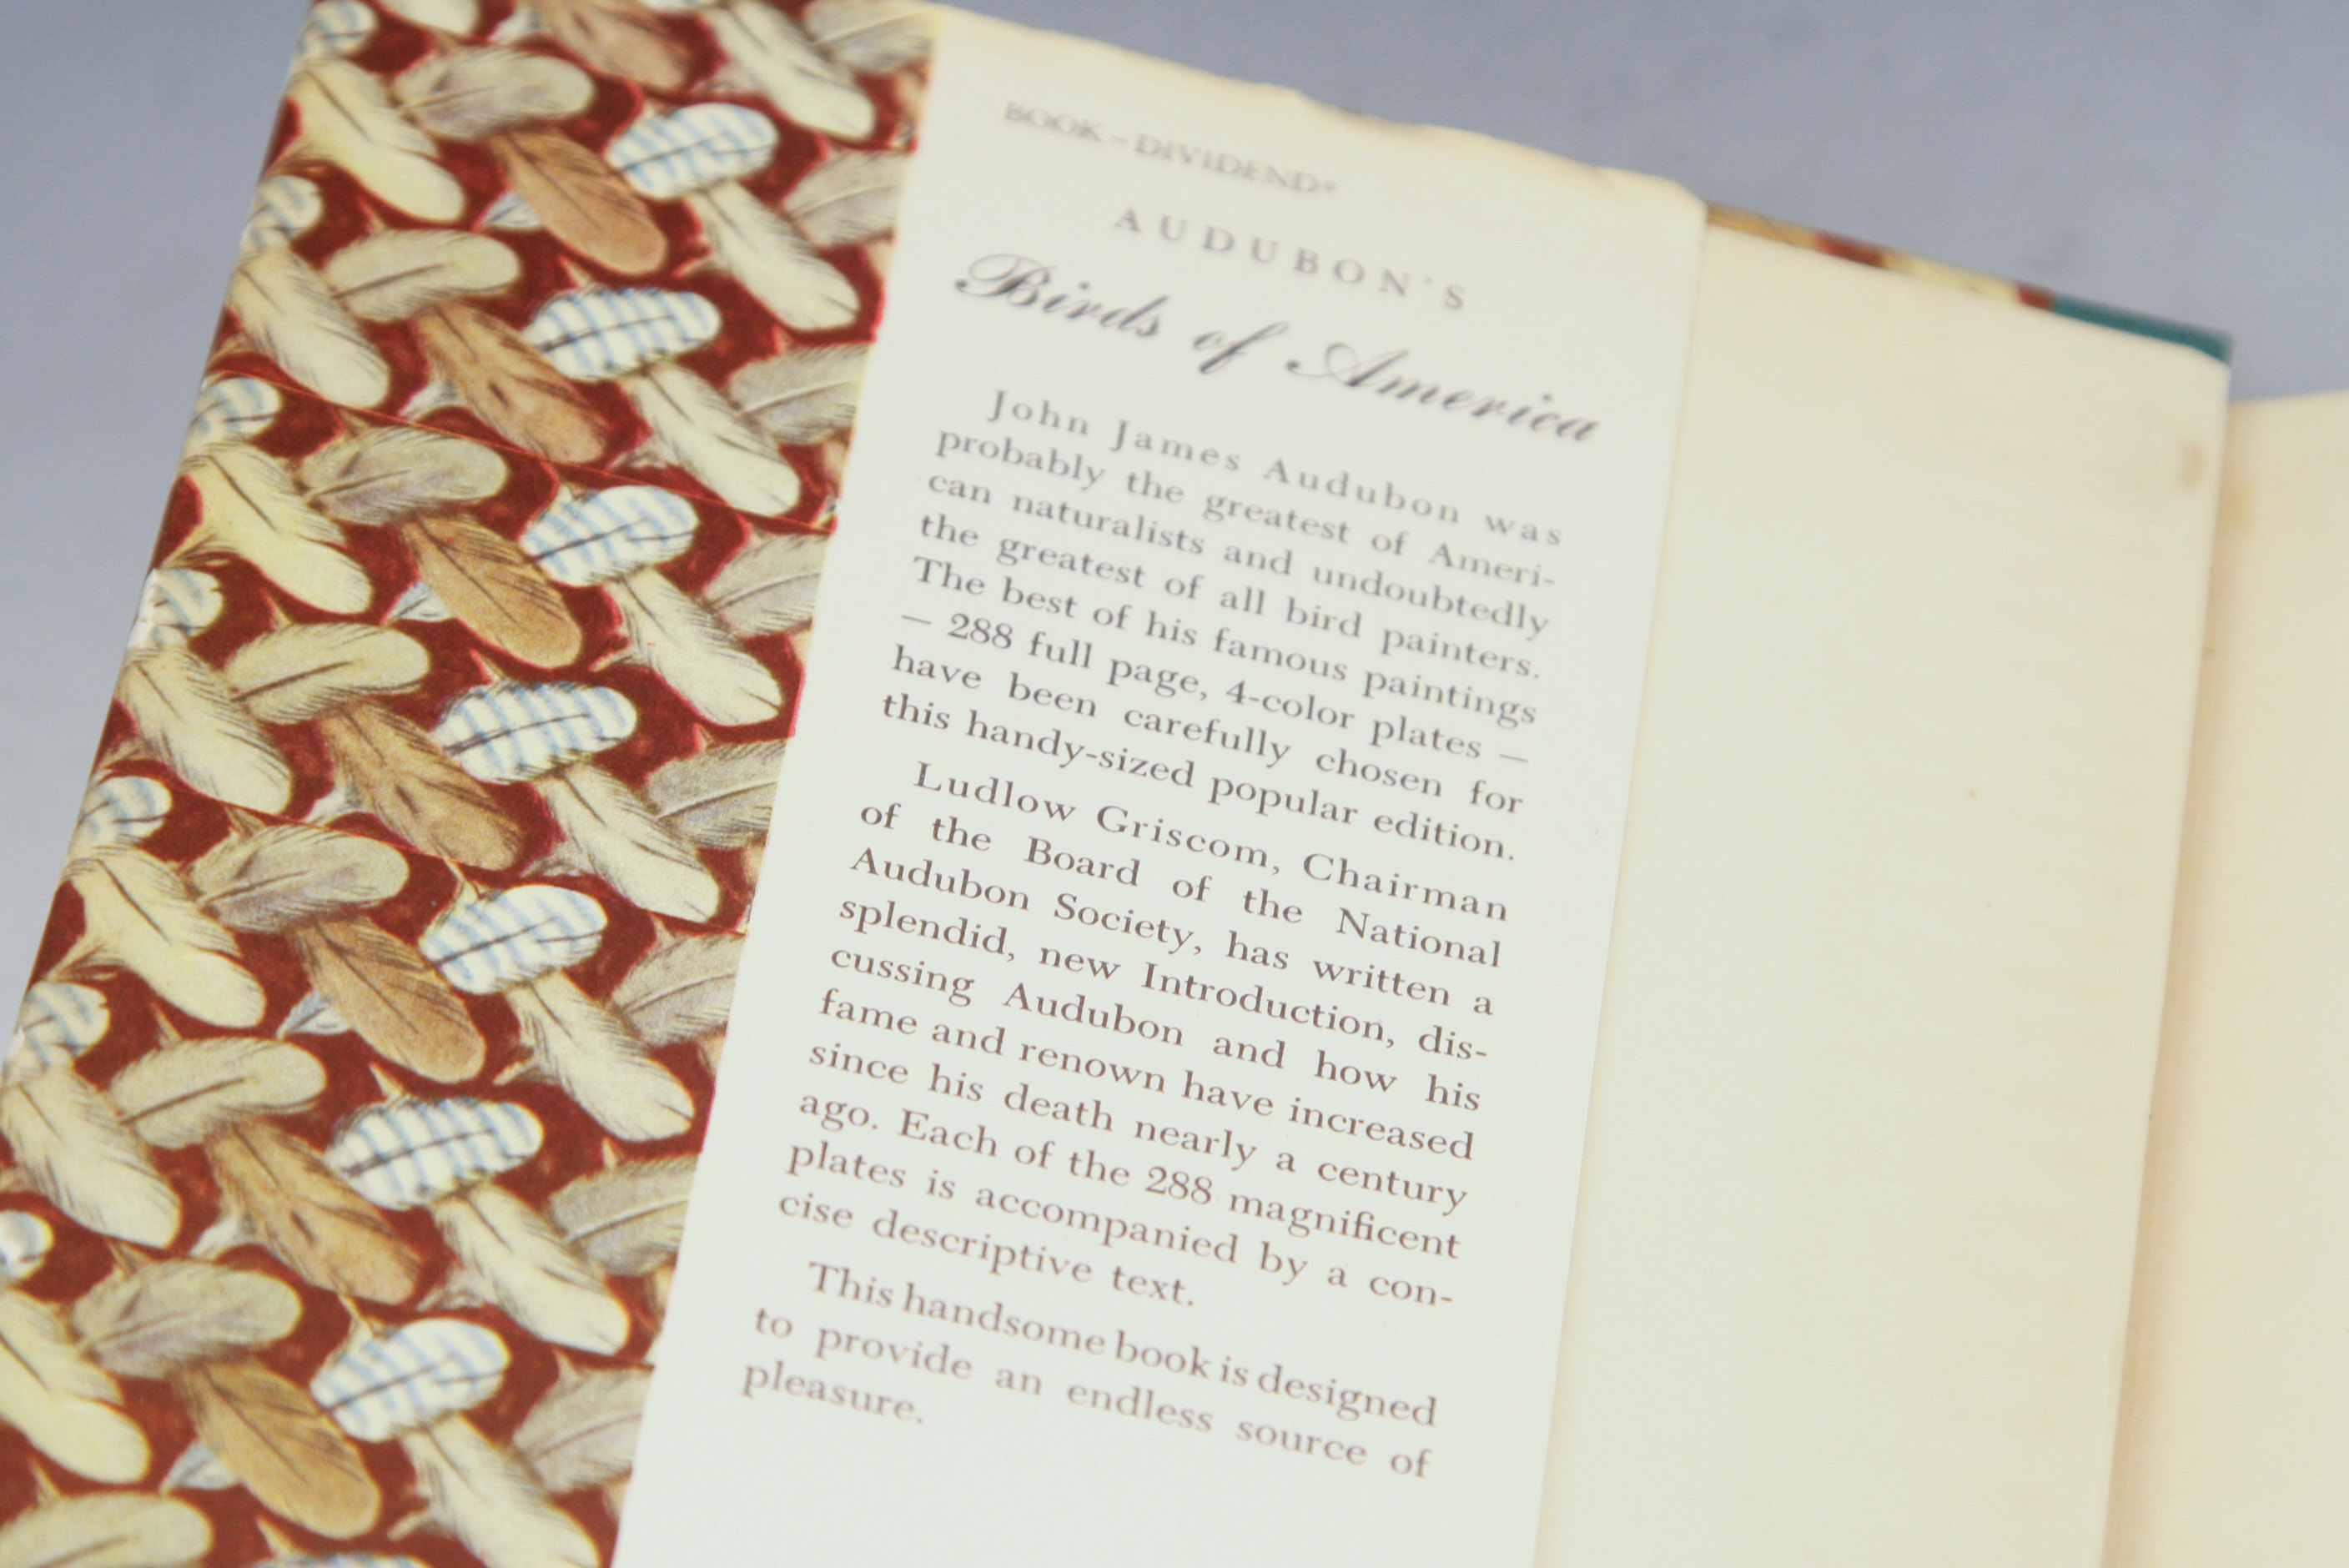 BOOK – DIVIDEND*
AUDUBON'S
Birds of America
John James Audubon was
probably the greatest of Ameri-
can naturalists and undoubtedly
the greatest of all bird painters.
The best of his famous paintings
— 288 full page, 4-color plates —
have been carefully chosen for
this handy-sized popular edition.
Ludlow Griscom, Chairman
of the Board of the National
Audubon Society, has written a
splendid, new Introduction, dis-
cussing Audubon and how his
fame and renown have increased
since his death nearly a century
ago. Each of the 288 magnificent
plates is accompanied by a con-
cise descriptive text.
This handsome book is designed
to provide an endless source of
pleasure.